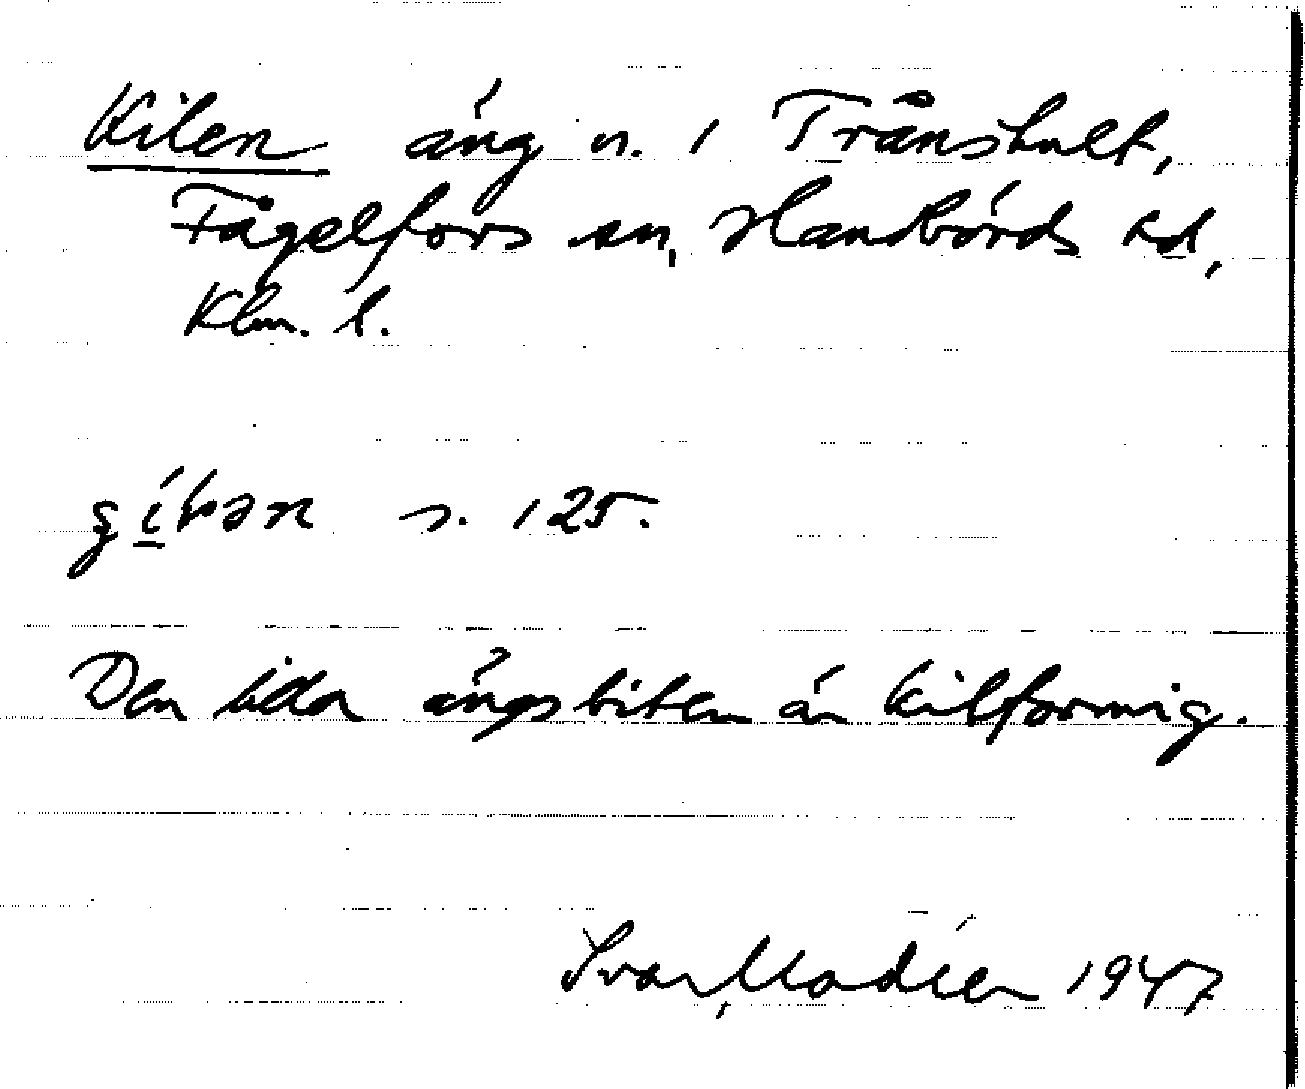 Kilen äng n. 1 Trånshult,
Fågelfors sn, Handbörds hd,
Klm. l.
s. 125.
Den lilla ängsbiten är kilformig.
Ivar Modéer 1947